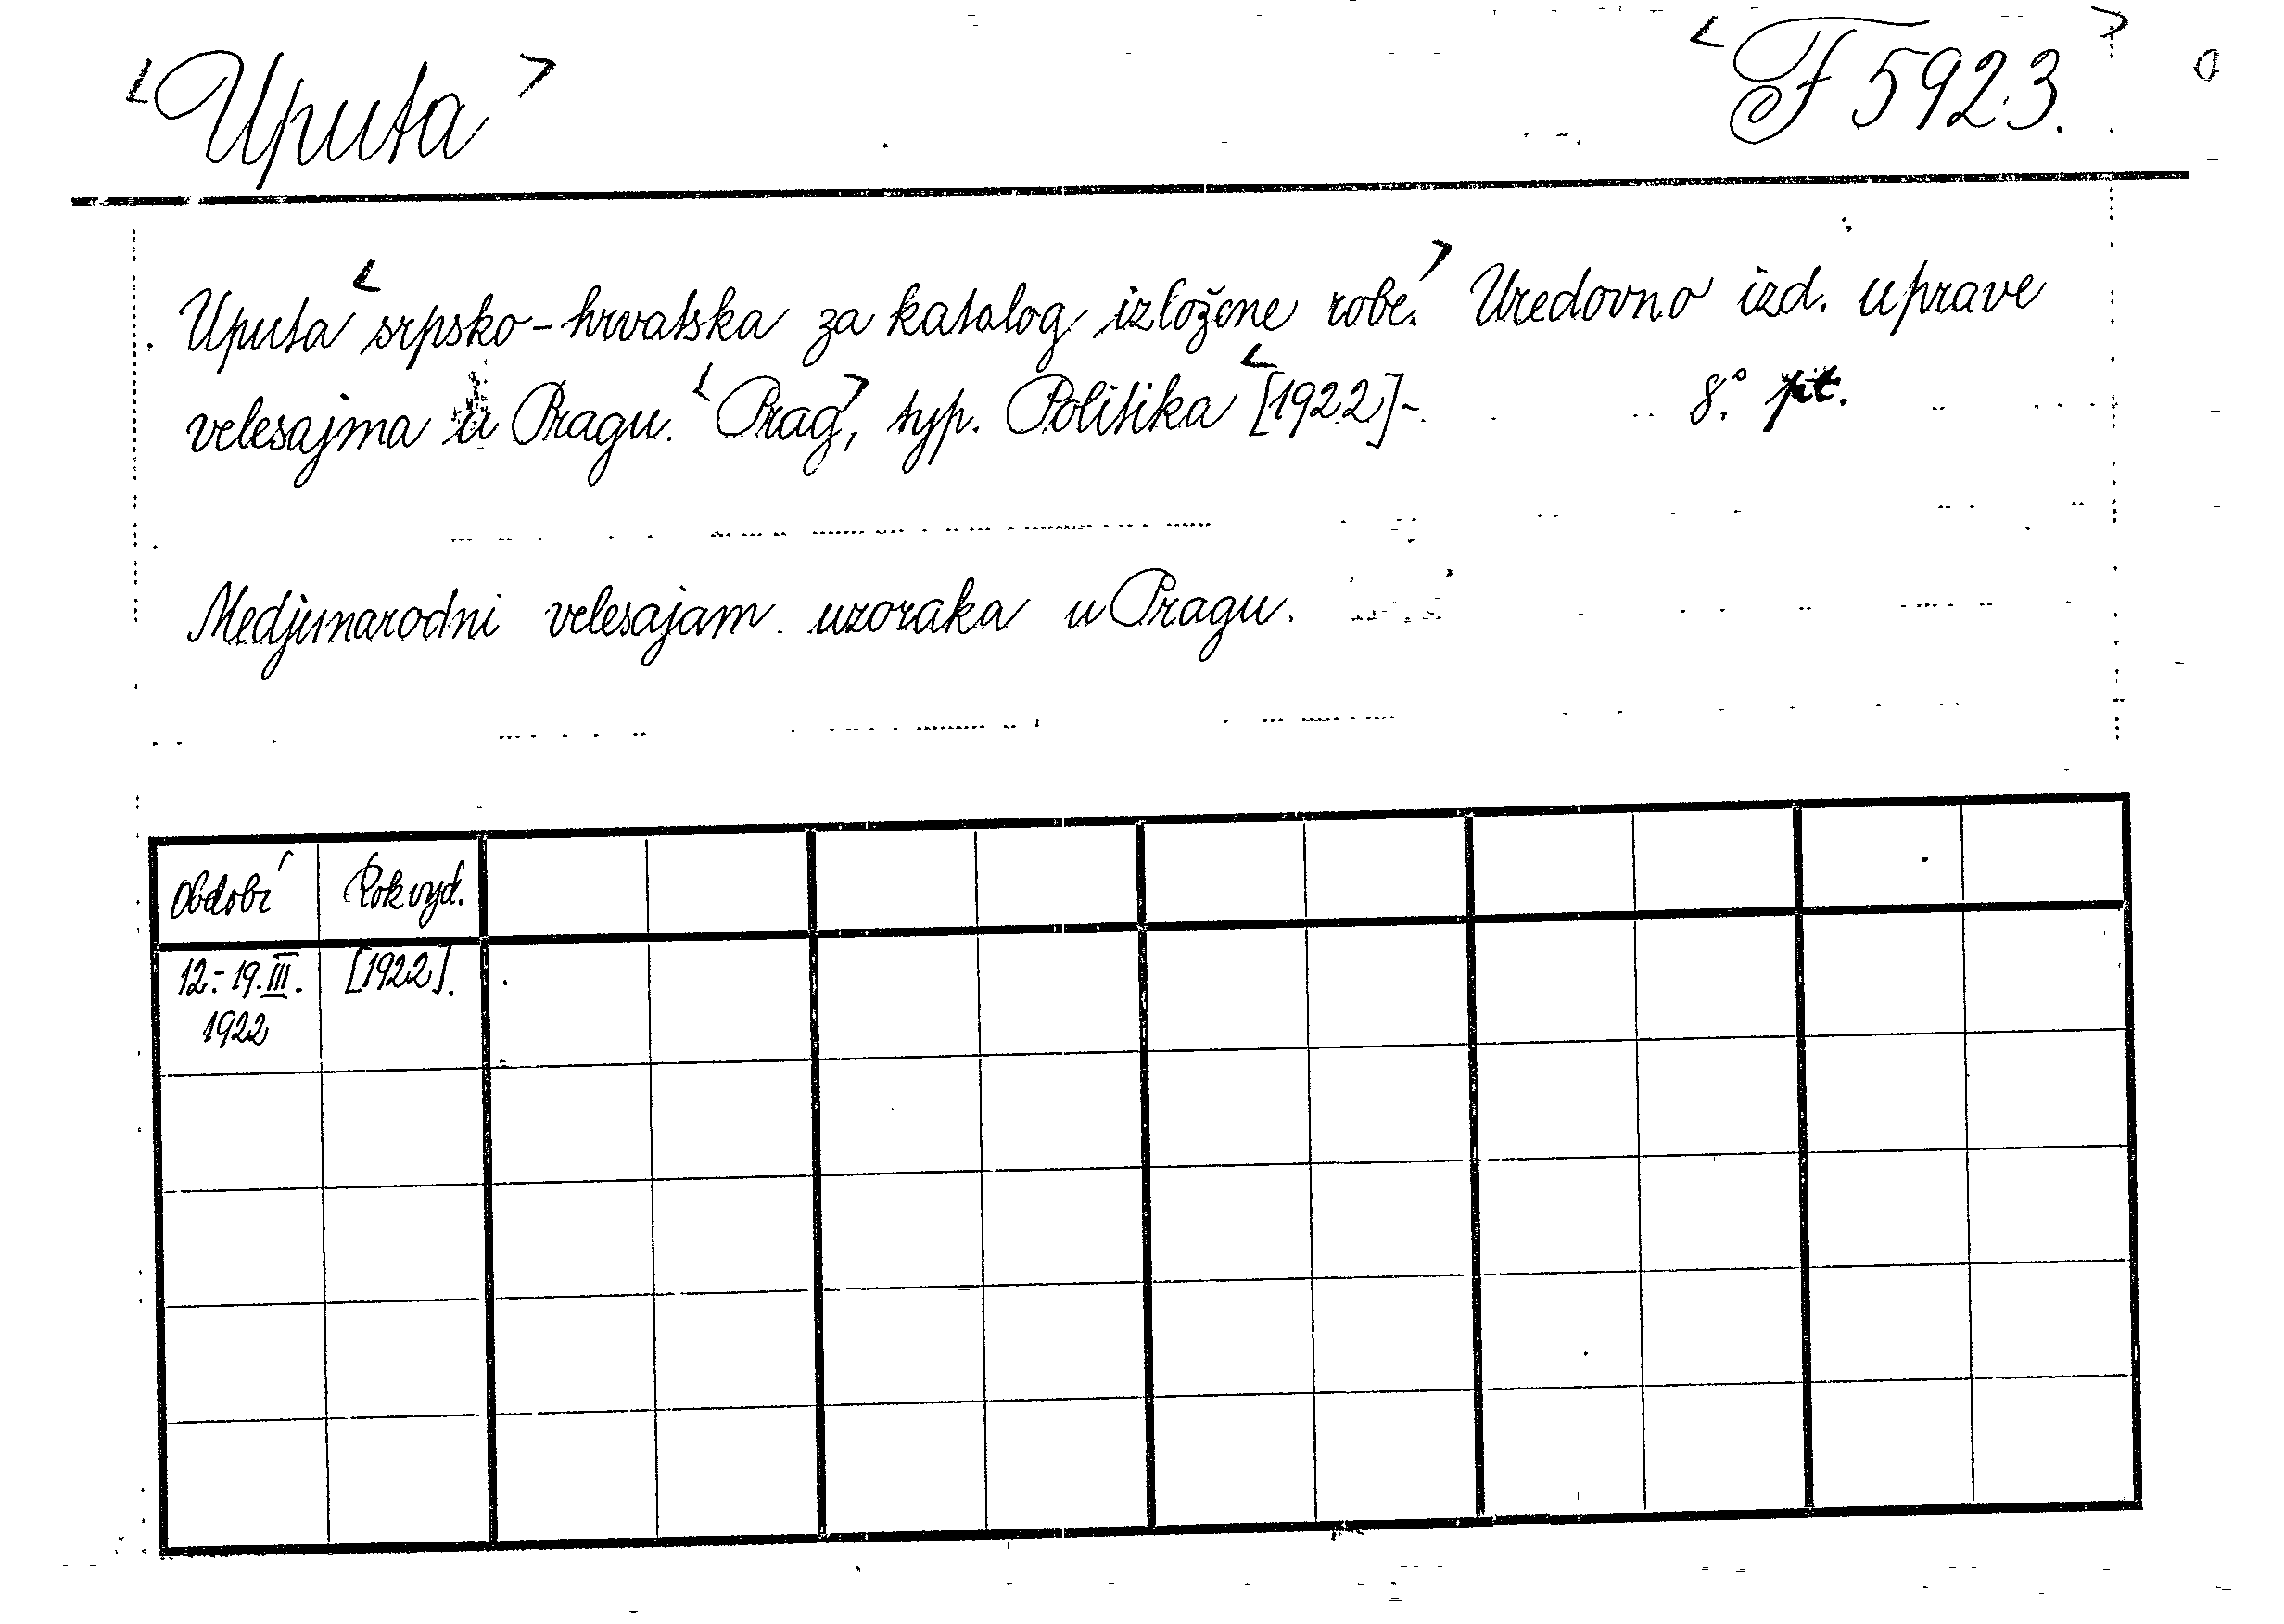 <Uputa> <F 5923.>
Uputa <srpsko-hrvatska za katalog izložene robe.> Uredovno izd. uprave
velesajma u Pragu. <Prag>, typ. Politika <[1922]- 8.° pt.
Medjunarodni velesajam uzoraka u Pragu.
Období Rok vyd.
12.-19.III. [1922].
1922